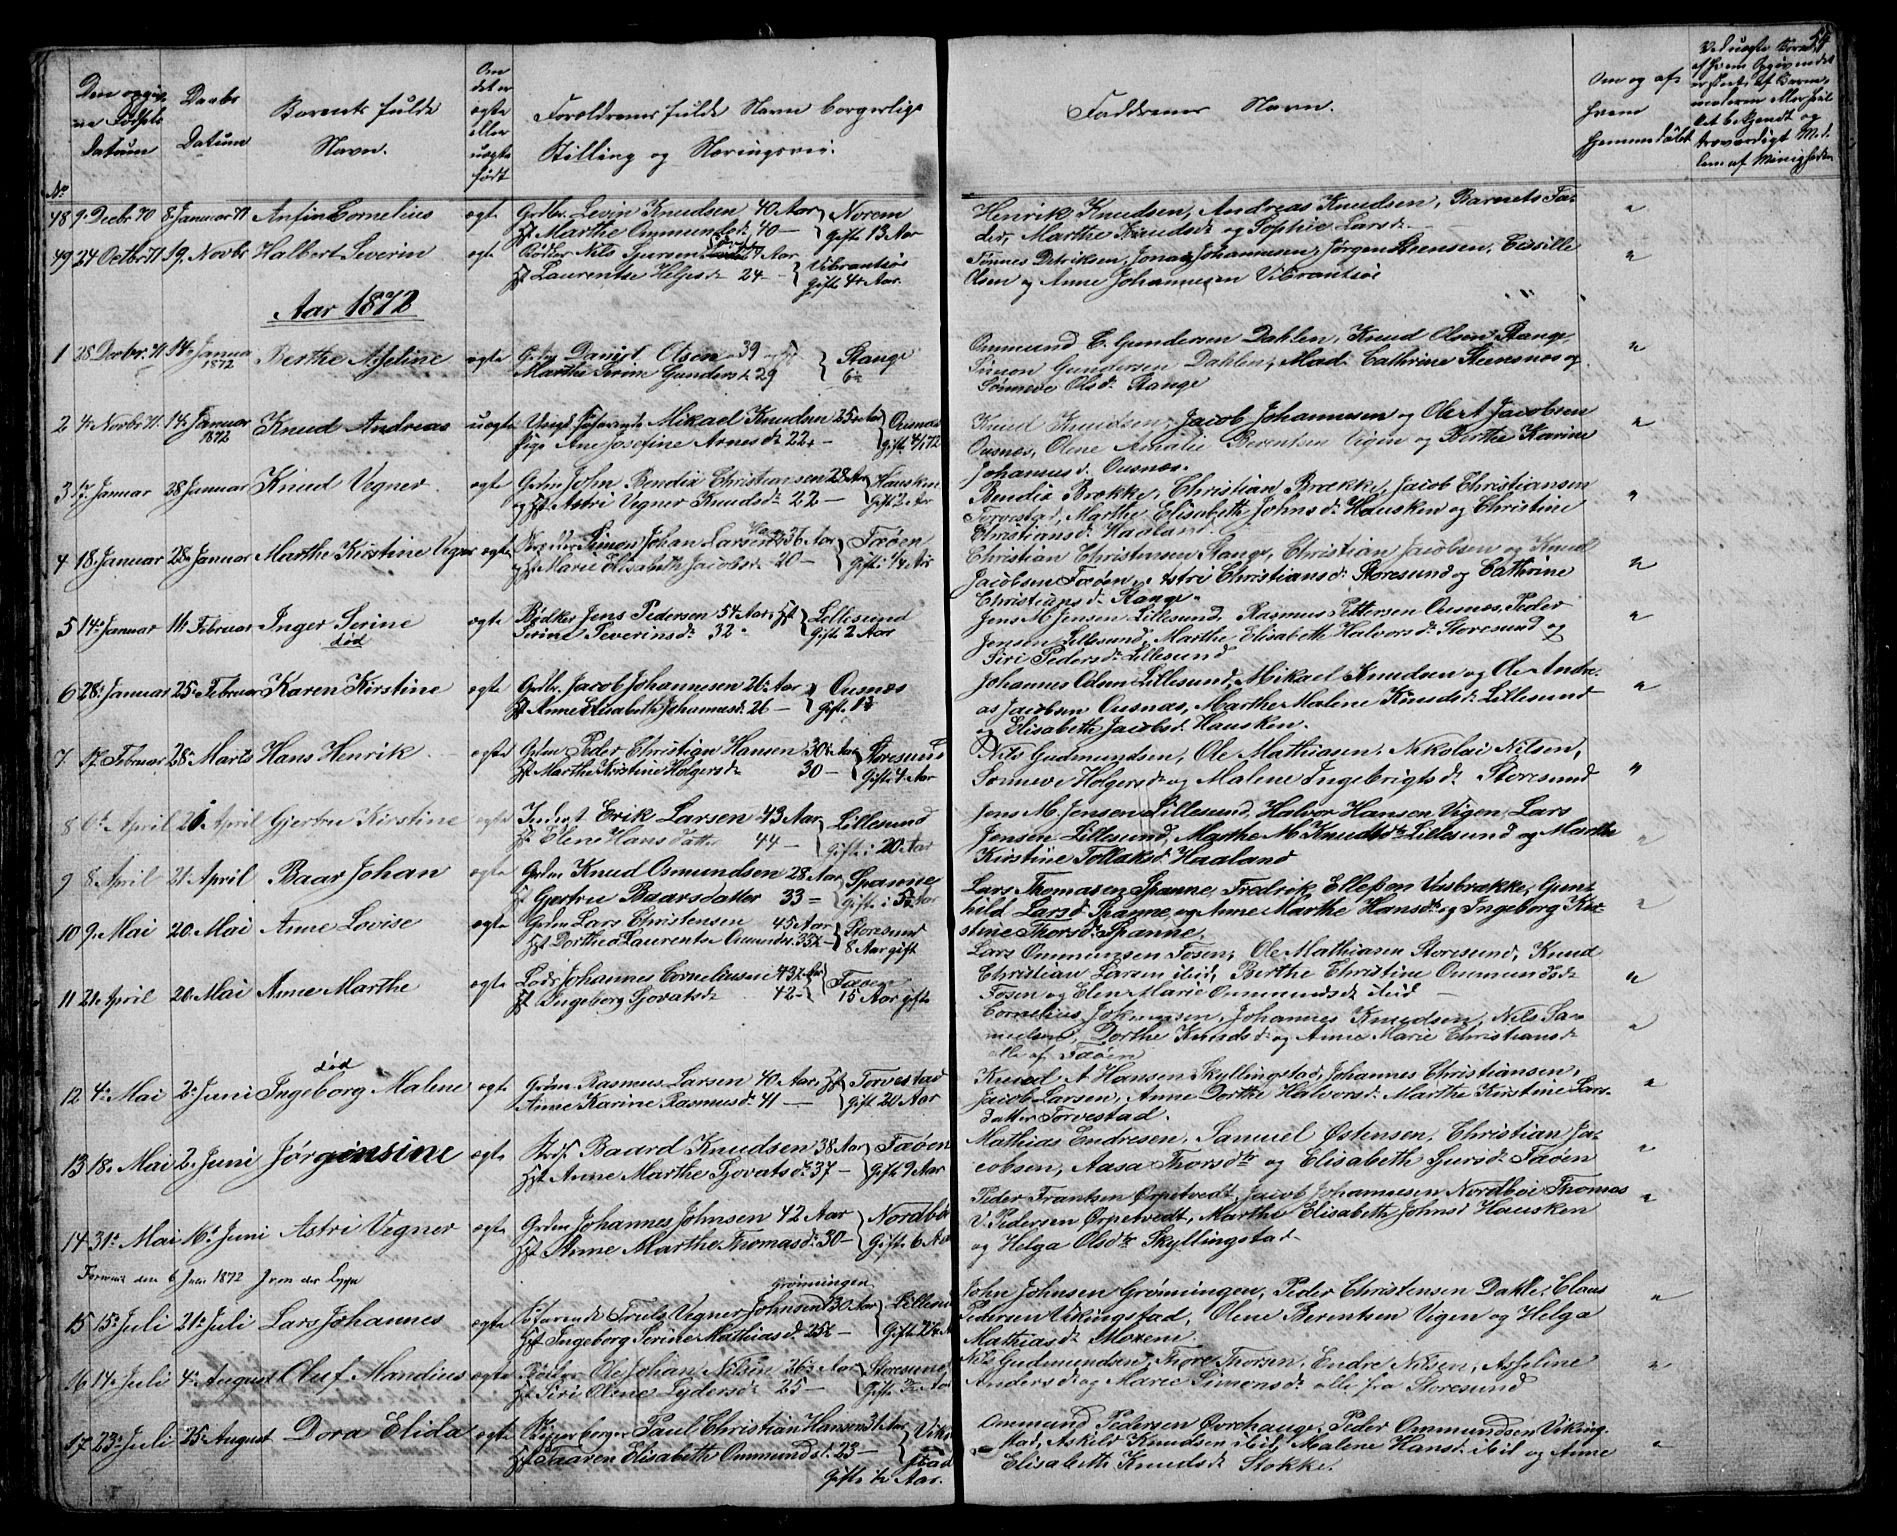 54
Daabs
Datum
Barnets fulde
Navn.
Om
det er
ægte
eller
uægte
født
Forældrenes fulde Navn borgerlige
Stilling og Næringsvei.
Faddernes Navn.
Om og af
hvem
hjemmedøbt
No
48 9. Decbr. 70 8. Januar 71 Anfin Cornelius ægte Grdbr. Levin Knudsen 40 Aar Norem
Hst Marthe Ommundsd. 40 — Gifte 13 Aar
Henrik Knudsen, Andreas Knudsen, Barnets Fa-
der, Marthe Knudsd. og Sophie Larsd.
49 24 Octbr 71 19. Novbr Halbert Severin ægte Nils Sjursen Aar
Hst Laurentse Heljesd. 24 — Vibrantiøe
Gifte 4 Aar.
Tønnes Detriksen, Jonas Johannesen, Jørgen Steensen, Cissille
Olsen og Anne Johannesen Vibrantiøe
Aar 1872
1 28 Decbr. 71 14. Januar 1872 Berthe Asseline ægte Daniel Olsen 39 Stange
Marthe Serine Gundersd. 29 6
Ommund E. Gundersen Dahlen, Knud Olsen Stange,
Simon Gundersen Dahlen, Mad. Cathrine Steensnæs og
Sønneve Olsd. Stange
2 4. Novbr 71. 14. Januar 1872 Knud Andreas uægte Ungk. Søfarende Mikael Knudsen 25 Aar Ousnæs
Pige Ane Josefine Arnesd. 22 —
Knud Knudsen, Jacob Johannesen og Ole A Jacobsen
Ousnæs, Olene Amalie Berentsen Vigen og Berthe Karine
Johannesd. Ousnæs.
3 17. Januar 28 Januar Knud Vegner ægte Grdm John Bendix Christiansen 28 Aar Hausken
og Hst Astri Vegner Knudsd. 22 — Gift 2 Aar
Bendix Brække, Christian Brække, Jacob Christiansen
Torvestad, Marthe Elisabeth Johnsd. Hausken og Christine
Christiansd. Haaland.
4 18. Januar 28. Januar Marthe Kirstine Vegner ægte Simon Johan Larsen 36 Aar Frøen
og Hst Marie Elisabeth Jacobsd. 20 — Gift
Christian Christensen Stange, Christian Jacobsen og Knud
Jacobsen Fæøen, Astri Christiansd. Storesund og Cathrine
Christiansd. Stange.
5 14. Januar 11. Februar Inger Serine ægte Bødker Jens Pedersen 54 Aar, Hst Lillesund
død Serine Severinsd. 32. Gift 2 Aar
Jens M Jensen Lillesund, Rasmus Pettersen Ousnæs, Peder
Jensen Lillesund, Marthe Elisabeth Halvorsd. Storesund og
Siri Pedersd. Lillesund
6 28. Januar 25. Februar Karen Kirstine ægte Grdbr. Jacob Johannesen 26 Aar Ousnæs
Hst Anne Elisabeth Johannesd. 26 — Gift.
Johannes Odsen Lillesund, Mikael Knudsen og Ole Andre-
as Jacobsen Ousnæs, Marthe Malene Knudsd. Lillesund
og Elisabeth Jacobsd. Hausken.
7 17. Februar 28. Marts Hans Henrik ægte Grdm. Peder Christian Hansen 30 Aar Storesund
Hst Marthe Kirstine Holgersd. 30 — Gifte 4 Aar
Nils Gudmundsen, Ole Mathiasen, Nikolai Nilsen,
Sønneve Holgersd. og Malene Ingebrigtsd. Storesund
8 April 21. April Gjertru Kirstine ægte Inderst Erik Larsen 43 Aar Lillesund
Hst Elen Hansdatter 44 — Gifte i 20 Aar
Jens M. Jensen Lillesund, Halvor Hansen Vigen, Lars
Jensen Lillesund, Marthe M. Knudsdt. Lillesund og Marthe
Kirstine Tollaksd. Haaland
9 8 April 21. April Baar Johan ægte Grdm Knud Osmundsen 28 Aar Spanne
Hst Gjertru Baarsdatter 33 — Gifte i Aar
Lars Thomasen Spanne, Fredrik Ellefsen Vasbrække, Gun-
hild Larsd. Spanne, og Anne Marthe Hansd. og Ingeborg Kir-
stine Thorsd. Spanne.
10 9. Mai 20. Mai Anne Lovise ægte Grdm Lars Christensen 45 Aar Storesund
Hst Dorthea Laurentse Ommundsd. 35 — 8 Aar gift
Lars Ommundsen Fosen, Ole Mathiasen Storesund, Knud
Christian Larsen ibid, Berthe Christine Ommundsd.
Fosen og Elen Marie Ommundsd. ibid —
11 21. April 20. Mai Anne Marthe ægte Lods Johannes Corneliusen 43 Aar Fæøen
Hst Ingeborg Govatsd. 42 — 15 Aar gifte
Cornelius Johannesen, Johannes Knudsen, Nils Sa-
muelsen, Dorthe Knudsd. og Anne Marie Christiansd.
alle af Fæøen
12 4. Mai 2. Juni Ingeborg Malene død ægte Grdm. Rasmus Larsen 40 Aar, Hst Torvestad
Anne Karine Rasmusd. 41 — Gift 20 Aar
Knud A Hansen Skyllingstad, Johannes Christiansen,
Jacob Larsen, Anne Dorthe Halvorsd. Marthe Kirstine Lars-
datter Torvestad.
13 18. Mai 2. Juni Jørgensine ægte Baard Knudsen 38 Aar Fæøen
Hst Anne Marthe Govatsd. 37 — Gift 9 Aar
Mathias Endresen, Samuel Østensen, Christian Ja-
cobsen, Aasa Thorsd. og Elisabeth Sjursd. Fæøen
14 31. Mai 16. Juni Astri Vegner ægte Grdm Johannes Johnsen 42 Aar Nordbø
Hst Anne Marthe Thomasd. 30 — Gift 6 Aar
Peder Frantsen Ørpetvedt, Jacob Johannesen Nordbøe, Thomas
V. Pedersen Ørpetvedt, Marthe Elisabeth Johnsd Hausken
og Helga Olsd. Skyllingstad
15 15. Juli 21. Juli Lars Johannes ægte Søfarende Truls Vegner Johnsen Grønningen 30 Aar Lillesund
Hst Ingeborg Serine Mathiasd. 25 — Gifte
John Johnsen Grønningen, Peder Christensen Dahle, Claus
Pedersen Vikingstad, Olene Berentsen Vigen og Helga
Mathiasd.
16 14. Juli 4. August Oluf Mandius ægte Ole Johan Nilsen 26 Aar Storesund
Hst Siri Olene Lydersd. 25 — Gifte
Nils Gudmundsen, Thore Thorsen, Endre Nilsen, Asseline
Andersd. og Marie Simonsd. alle fra Storesund
17 23. Juli 25. August Dora Elida ægte Paul Christian Hansen 31 Aar Vikingstad
Hst Taaren Elisabeth Ommundsd. 23 — Gift Aar.
Ommund Pedersen Øvrehauge, Peder Ommundsen Viking-
stad, Askild Knudsen ibid, Malene Hansd. ibid og Anne
Elisabeth Knudsd. Stokke.